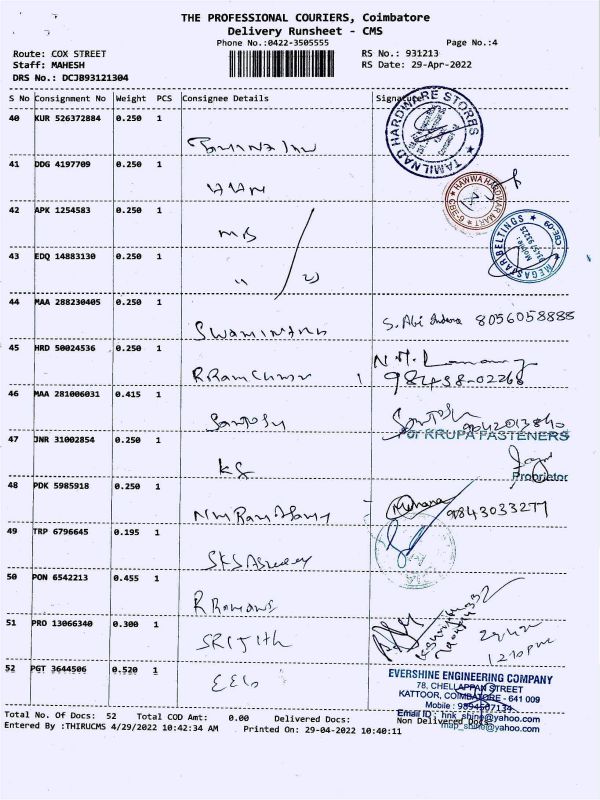 THE PROFESSIONAL COURIERS, Coimbatore
Delivery Runsheet - CMS
Phone No.:0422-3505555
Page No.:4
Route: COX STREET
RS No.: 931213
Staff: MAHESH
RS Date: 29-Apr-2022
DRS No.: DCJB93121304
S No Consignment No Weight PCS Consignee Details Signature
40 KUR 526372884 0.250 1
TAMILNAD HARDWARE STORES
41 DDG 4197709 0.250 1
HAWWA HARDWAR MART
CBE-9
42 APK 1254583 0.250 1 MB
MEGASTAR BELTINGS CBE-09
Mobile:
43 EDQ 14883130 0.250 1 "
44 MAA 288230405 0.250 1
8056058888
45 HRD 50024536 0.250 1
98438-02268
46 MAA 281006031 0.415 1 Santosh
Santosh
47 JNR 31002854 0.250 1 KS
For KRUPA FASTENERS
Proprietor
48 PDK 5985918 0.250 1
9843033277
49 TRP 6796645 0.195 1
50 PON 6542213 0.455 1
51 PRO 13066340 0.300 1 SRIJITH
12.10 pm
52 PGT 3644506 0.520 1
EVERSHINE ENGINEERING COMPANY
78, CHELLAPPAN STREET
KATTOOR, COIMBATORE - 641 009
Mobile : 9894507134
Email ID : hnk_shine@yahoo.com
map_shine@yahoo.com
Total No. Of Docs: 52 Total COD Amt: 0.00 Delivered Docs: Non Delivered Docs:
Entered By :THIRUCMS 4/29/2022 10:42:34 AM Printed On: 29-04-2022 10:40:11